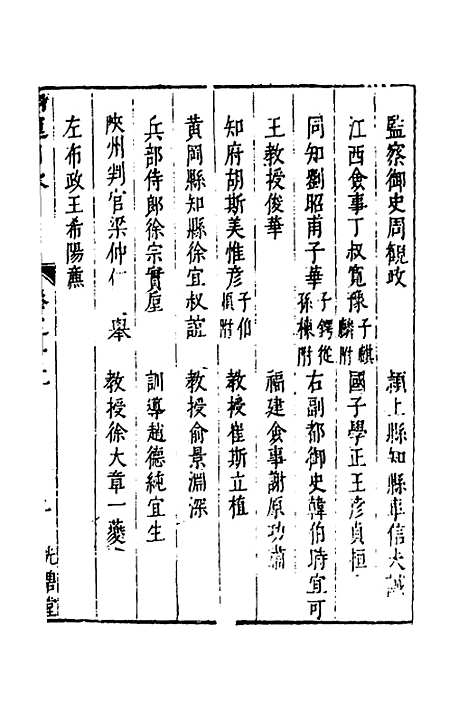 監察御史周觀政　潁上縣知縣車信夫誠
江西僉事丁叔寬豫子麒麟附　國子學正王彥貞桓
同知劉昭甫子華子鍔從孫棟附　右副都御史韓伯時宜可
王教授俊華　福建僉事謝原功肅
知府胡斯美惟彥子伯順附　教授崔斯立植
黃岡縣知縣徐宜叔誼　教授俞景淵深
兵部侍郎徐宗實垕　訓導趙德純宜生
陝州判官梁仲仁　舉　教授徐大章一夔
左布政王希陽薦